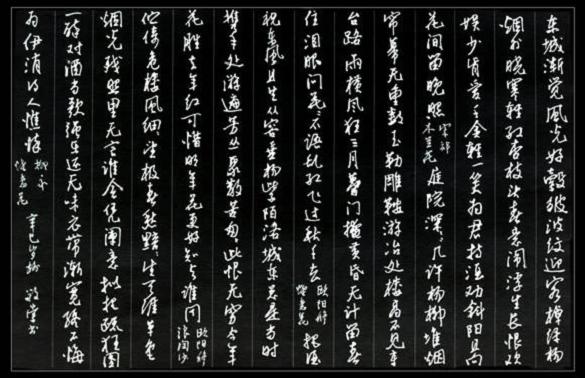 东城渐觉风光好縠皱波纹迎客棹绿杨
烟外晓寒轻红杏枝头春意闹浮生长恨欢
娱少肯爱千金轻一笑为君持酒劝斜阳且向
花间留晚照 宋祁 木兰花 庭院深深几许杨柳堆烟
帘幕无重数玉勒雕鞍游冶处楼高不见章
台路雨横风狂三月暮门掩黄昏无计留春
住泪眼问花花不语乱红飞过秋千去 欧阳修 蝶恋花 把酒
祝东风且共从容垂杨紫陌洛城东总是当时
携手处游遍芳丛聚散苦匆匆此恨无穷今年
花胜去年红可惜明年花更好知与谁同 欧阳修 浪淘沙
伫倚危楼风细细望极春愁黯黯生天际草色
烟光残照里无言谁会凭阑意拟把疏狂图
一醉对酒当歌强乐还无味衣带渐宽终不悔
为伊消得人憔悴 柳永 蝶恋花 辛巳岁 书